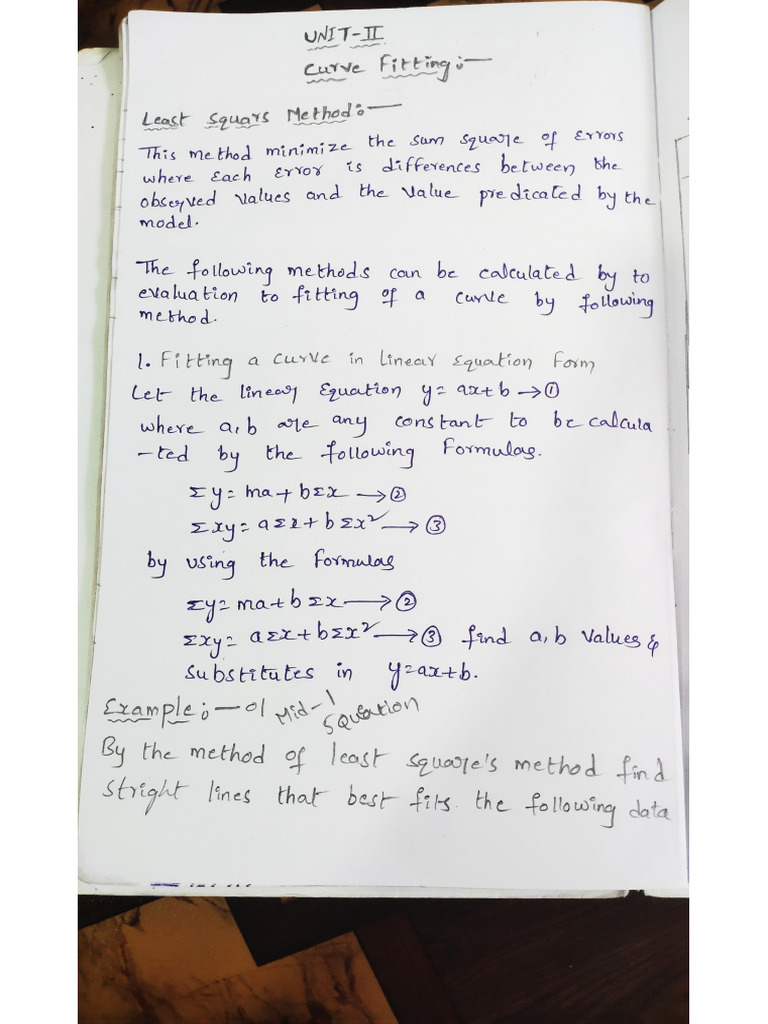 UNIT-II
Curve Fitting:-
Least Squars Method:-
This method minimize the sum square of errors
where each error is differences between the
observed values and the value predicated by the
model.
The following methods can be calculated by to
evaluation to fitting of a curve by following
method.
1. Fitting a curve in linear equation form
Let the linear equation y = ax+b → ①
where a, b are any constant to be calcula
-ted by the following formulas.
Σy = ma + bΣx → ②
Σxy = aΣx + bΣx² → ③
by using the formulas
Σy = ma + bΣx → ②
Σxy = aΣx + bΣx² → ③ find a, b values &
substitutes in y=ax+b.
Example:- 01 Mid-1
By the method of least square's method find
stright lines that best fits. the following data